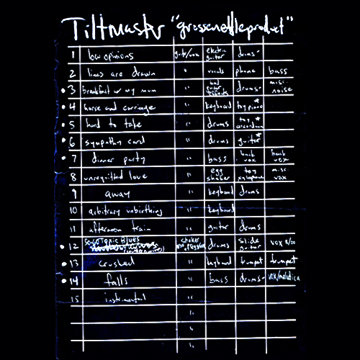 Tiltmaster "grossenetleproduct"
1 low opinions guitr/vox electr. guitar drums
2 lines are drawn " vocals phone bass
3 breakfast w/ my mom " drums misc. noise
4 horse and carriage " keyboard toy piano
5 hard to take " drums toy accordion
6 sympathy card " drums guitar
7 dinner party " bass back vox back vox
8 unrequited love " egg shaker toy xylophone misc vox
9 away " keyboard drums
10 arbitrary unbirthing " keyboard
11 afternoon train " guitar drums
12 Blues shaker drums slide guitar vox
13 crushed " keyboard trumpet trumpet
14 falls " bass drums vox/melodica
15 instrumental "